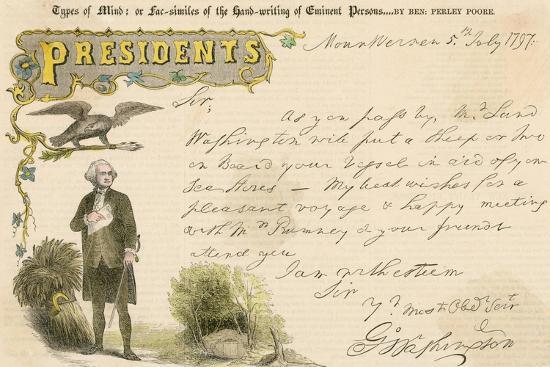 Types of Mind: or Fac-similes of the Hand-writing of Eminent Persons....BY BEN: PERLEY POORE.
PRESIDENTS
Mount Vernon 5.th July 1797.
Sir,
As you pass by, Mr. Lund
Washington will put a Sheep or two
on Board your Vessel in aid of your
Sea Stores — My best wishes for a
pleasant voyage & happy meeting
with Mrs Rumney & your friends
attend you
I am with esteem
Sir
Yr. most Obedt Servt
Go Washington